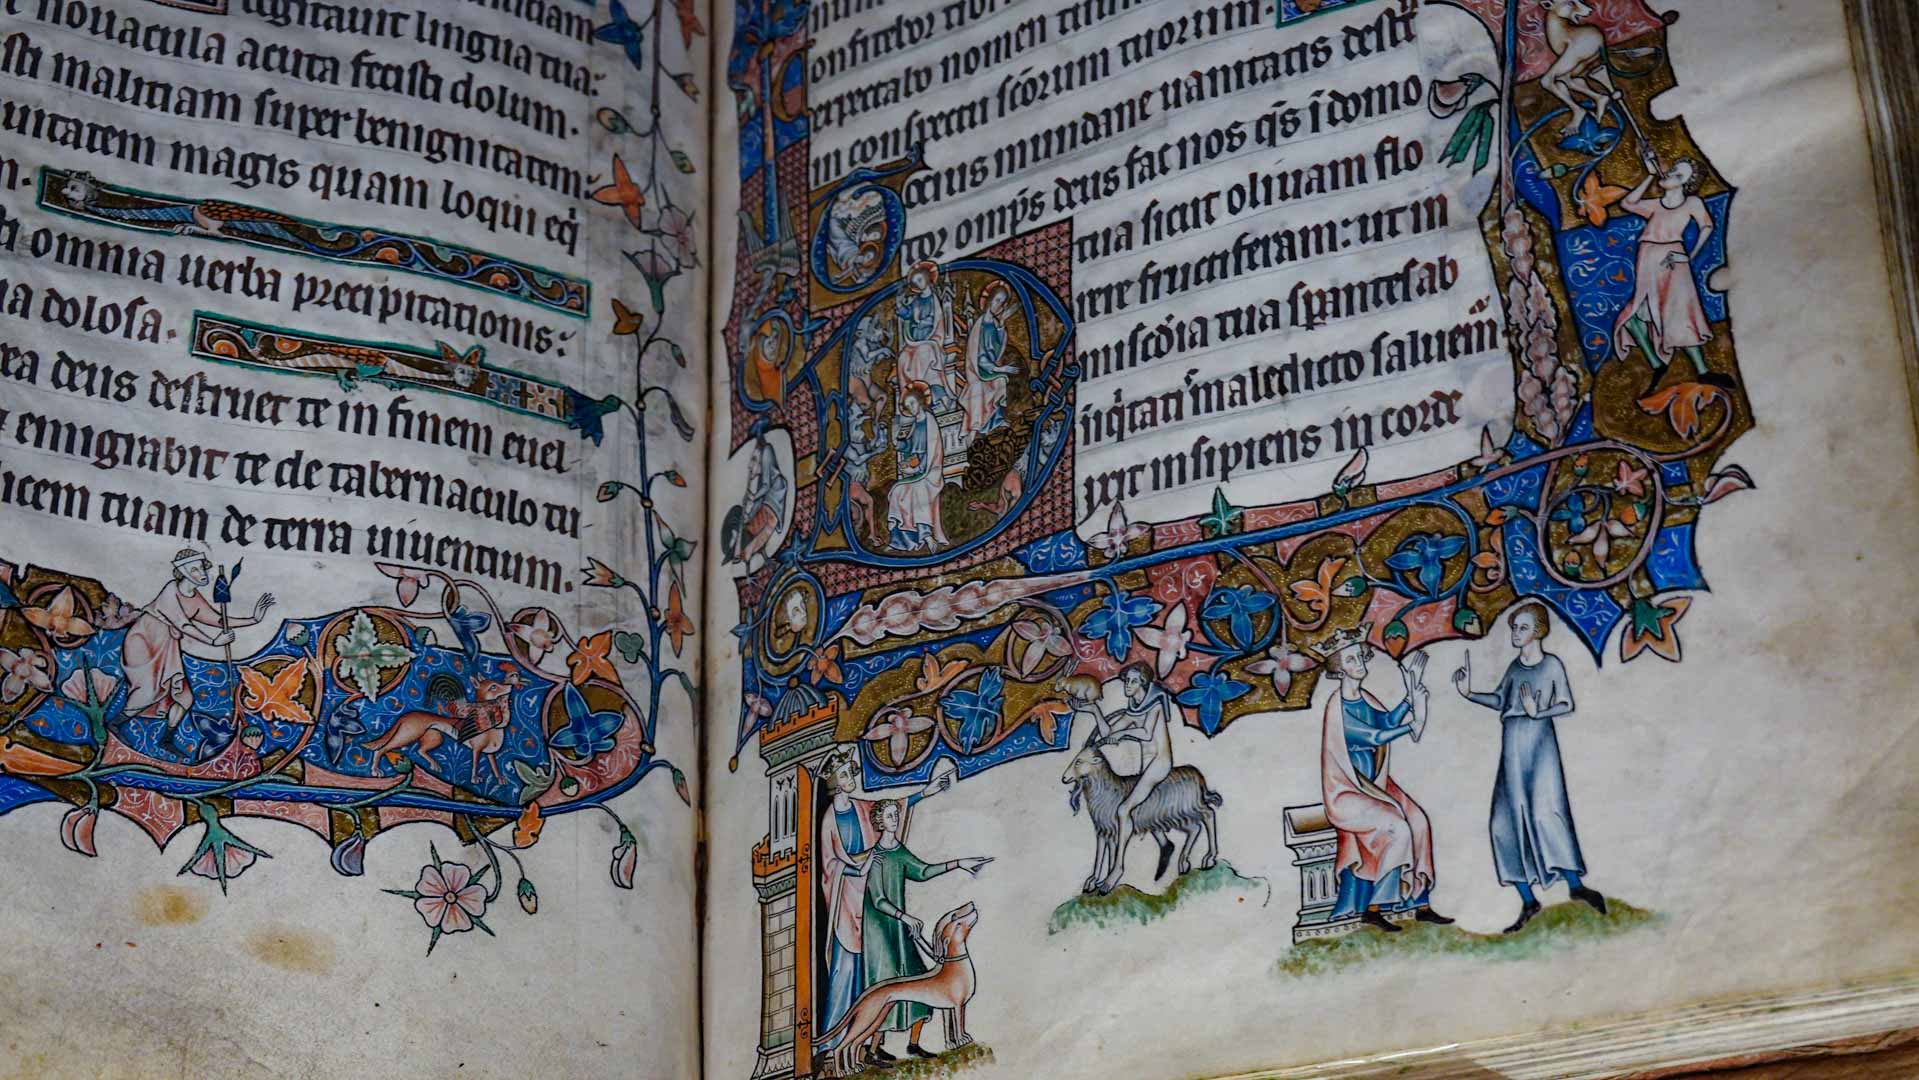 cogitauit lingua tua:
nouacula acuta fecisti dolum.
isti malitiam super benignitatem:
uitatem magis quam loqui eq̄
omnia uerba precipitationis:
dolosa.
deus destruet te in finem euel
emigrabit te de tabernaculo tu
icem tuam de terra uiuentium.
onfitebor tibi
expectabo nomen tuum
in conspectu scōrum tuorum.
Ocius mundane uanitatis destr̄
tor omp̄s deus fac nos q̄s ī domo
tua sicut oliuam flo
rere fructiferam: ut in
misc̄dia tua sperantes ab
iniq̄tatis maledicto saluem̄
Dixit insipiens in corde